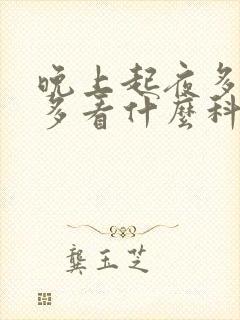 晚上起夜多
多看什麼科
龔玉芝